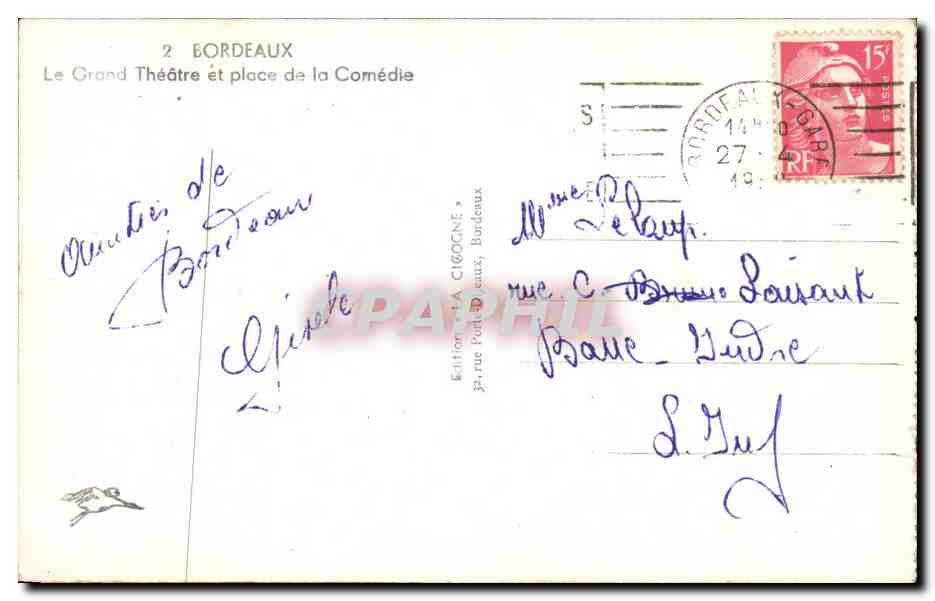 2 BORDEAUX
Le Grand Théâtre et place de la Comédie
Amitiés de
Bordeaux
Gisèle
Edition « LA CIGOGNE »
32, rue Porte-Dijeaux, Bordeaux
CPAPHIL
15F
POSTES
RF
BORDEAUX-GARE
14H
27 - 4
19
S
Mme Delaup.
rue C. Loisant
Basse-Indre
L. Inf